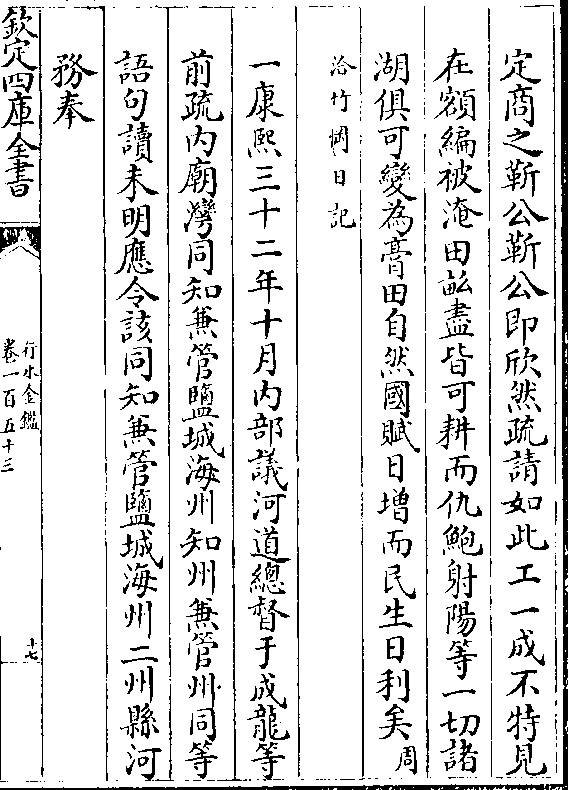 定商之靳公靳公即欣然疏請如此工一成不特見
在額編被淹田畝盡皆可耕而仇鮑射陽等一切諸
湖俱可變為膏田自然國賦日增而民生日利矣周
洽竹岡日記
一康熙三十二年十月內部議河道總督于成龍等
前疏內廟灣同知兼管鹽城海州知州兼管州同等
語句讀未明應令該同知兼管鹽城海州二州縣河
務奉
欽定四庫全書
行水金鑑
卷一百五十三
十七